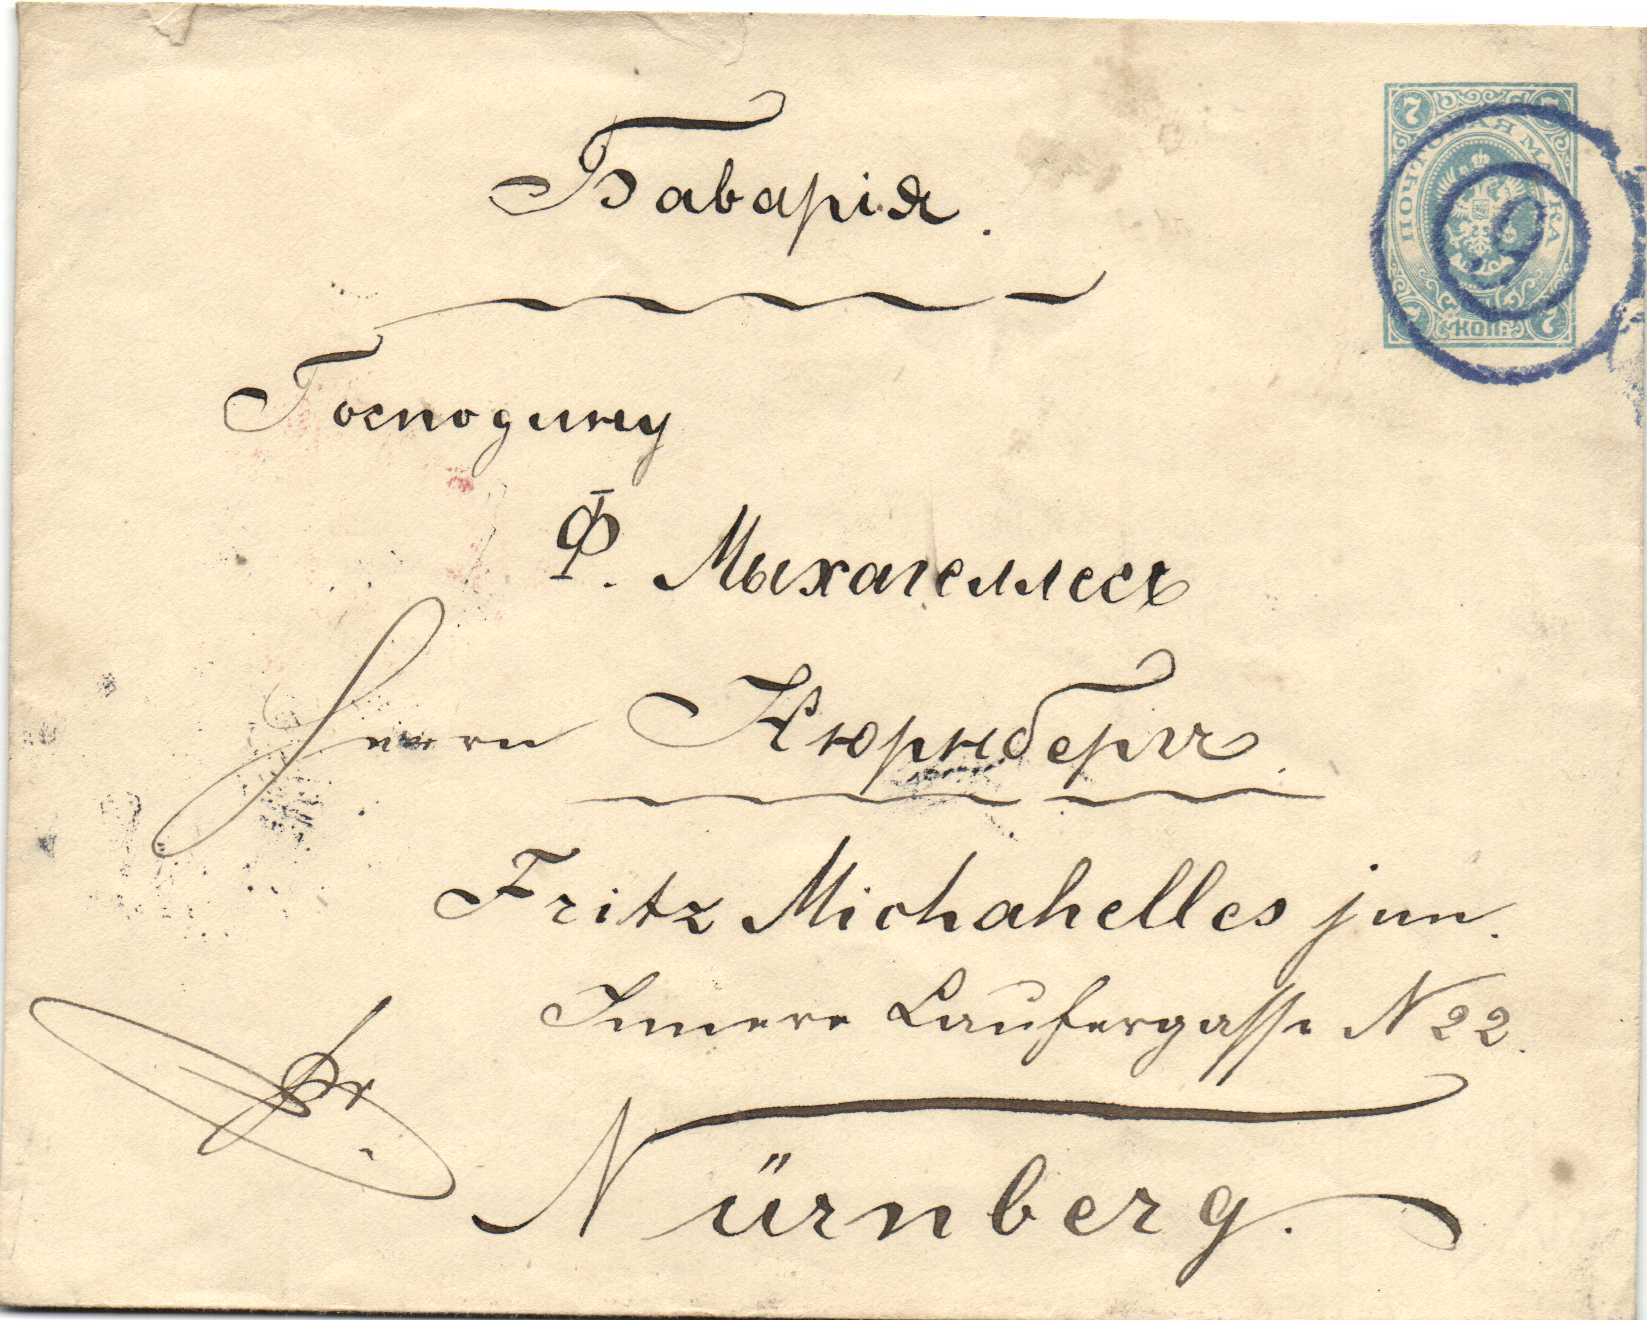 Баварія.
7 7
ПОЧТОВАЯ МАРКА
9
7 КОП. 7
Господину
Ф. Мыхагеллесъ
Herrn Нюрнбергъ.
Fritz Michahelles jun.
Innere Laufergasse N 22.
Nürnberg.